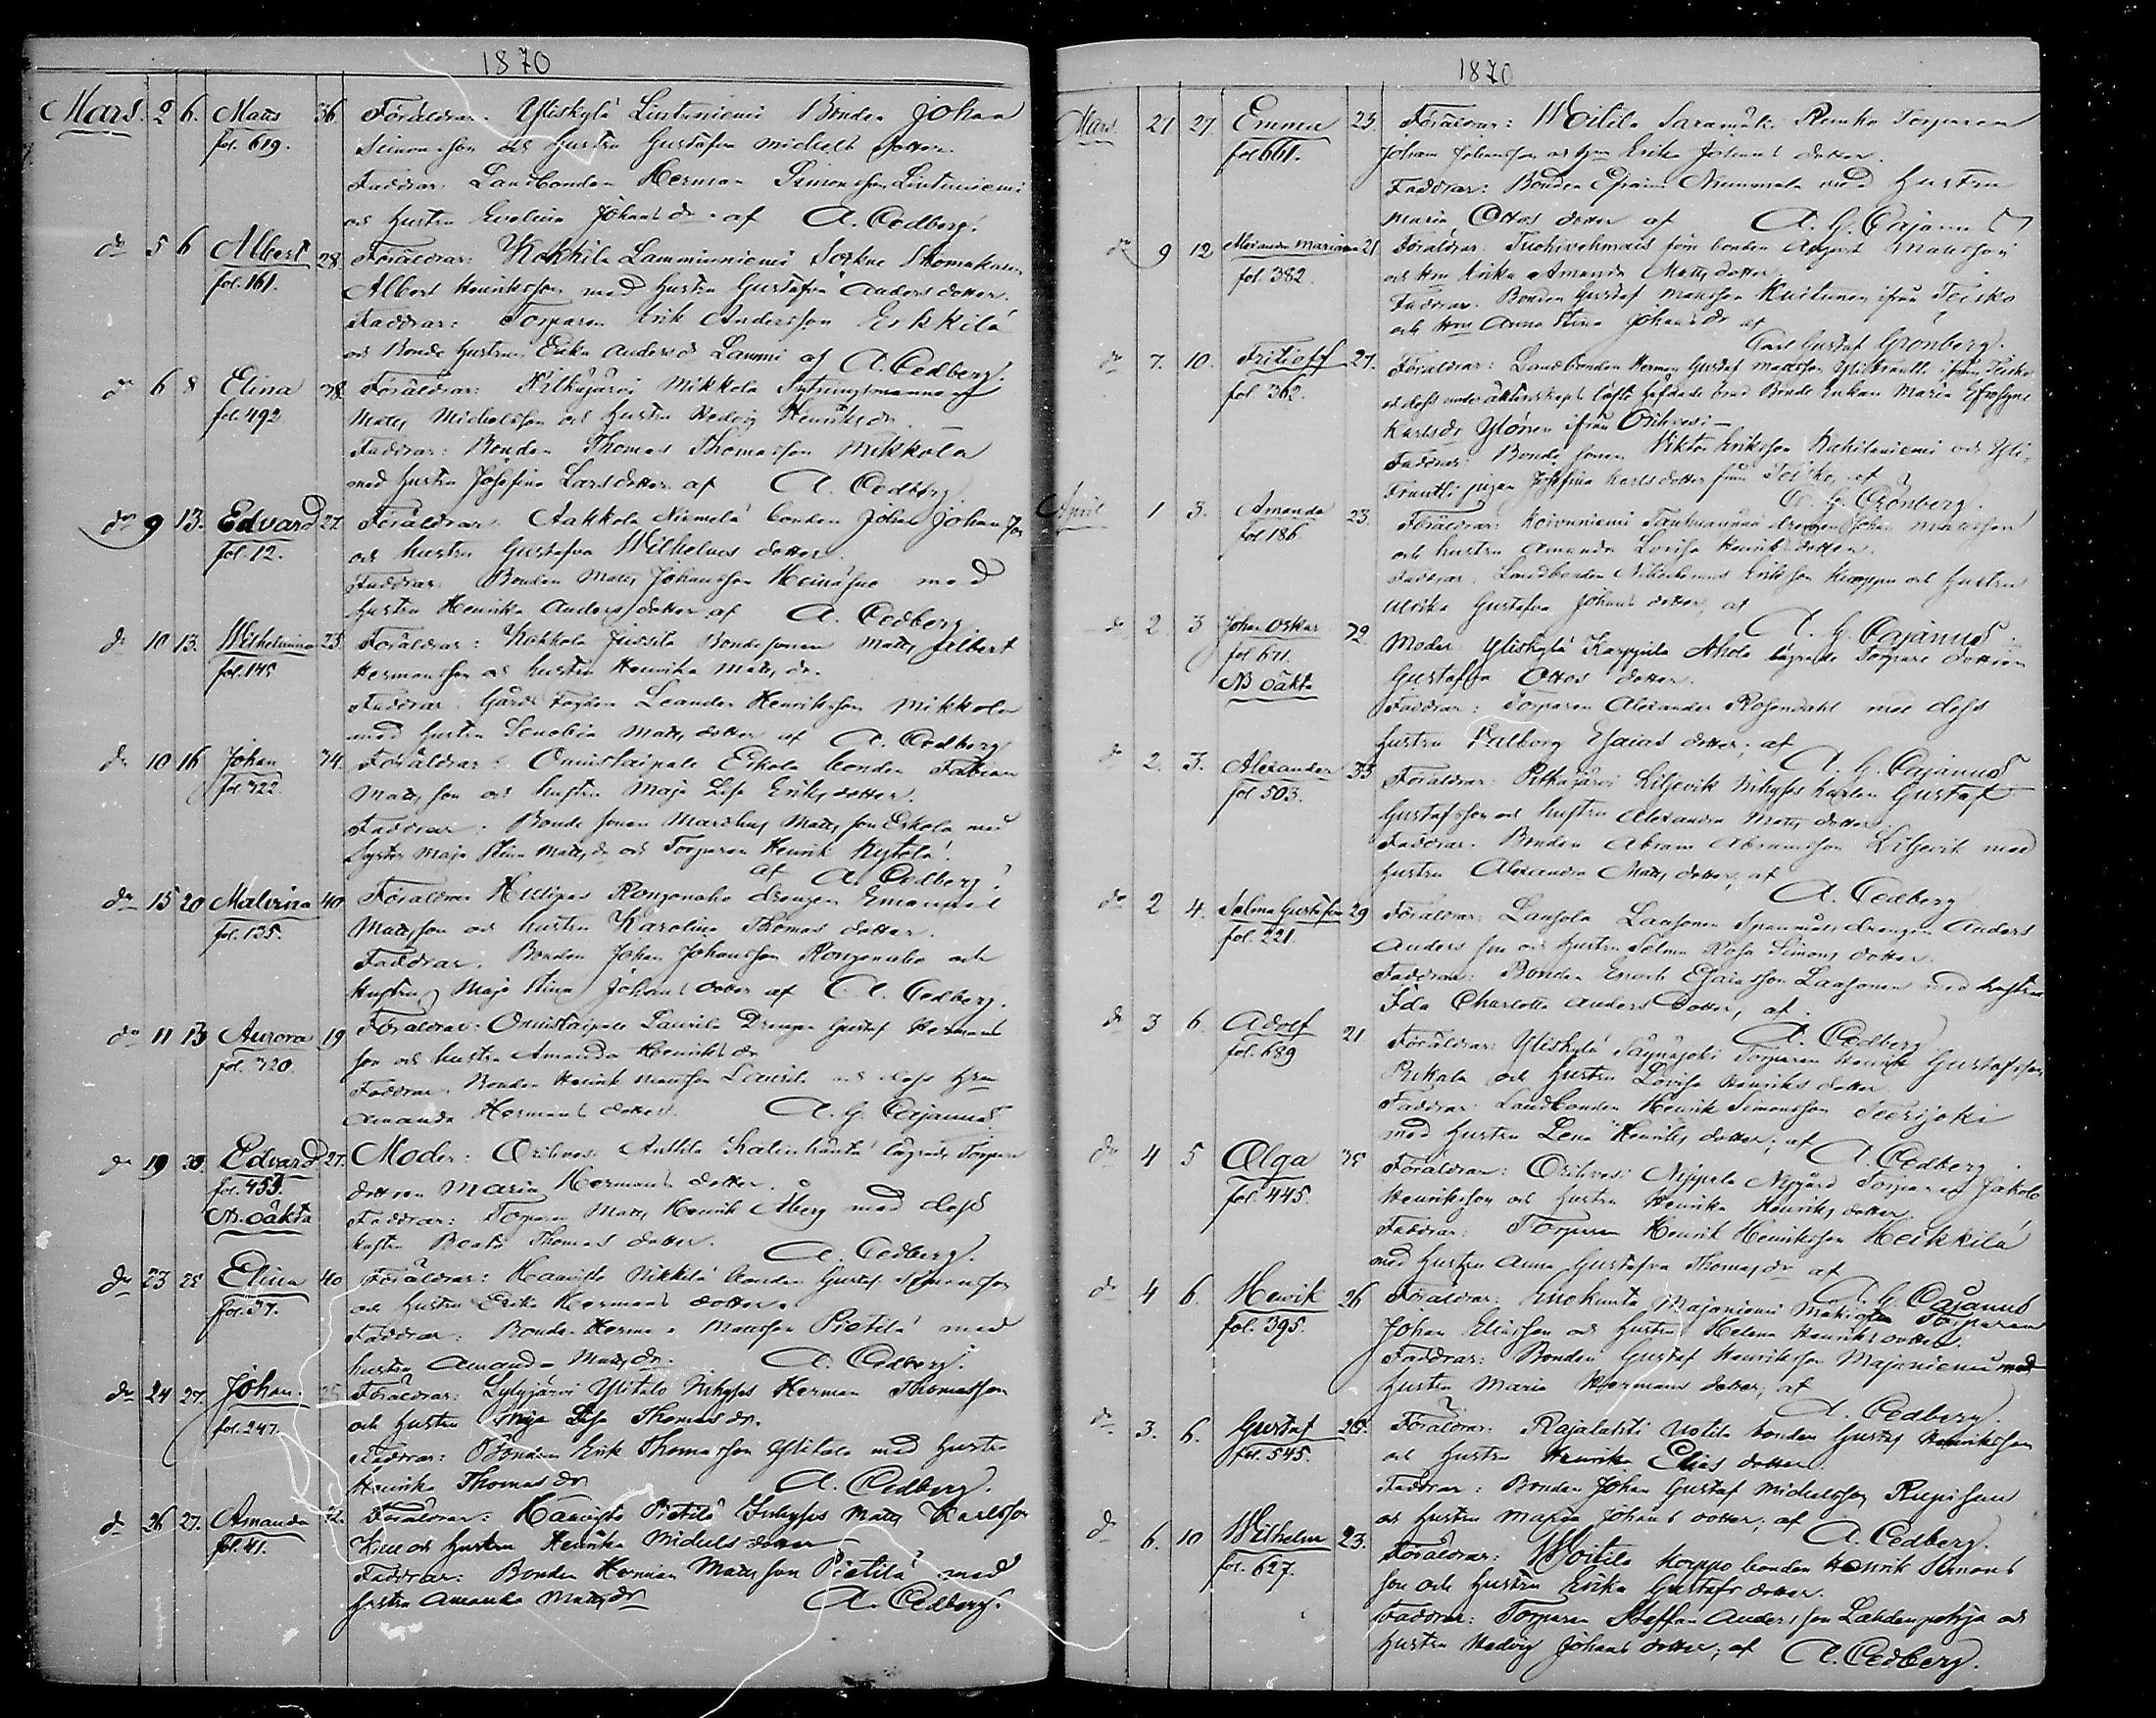 1870
Mars. 2 6. Matts 36. Föräldrar: Yliskylä Lintuniemi Bonden Johan
fol. 619. Simonsson och Hustru Gustafva Michels dotter.
Faddrar: Landbonden Herman Simonsson Lintuniemi
och Hustru Evelina Johans dr. af A. Cedberg.
do 5 6 Albert 28 Föräldrar: Kokkila Lamminniemi
fol. 161. Albert Henriksson med Hustru Gustafva Anders dotter.
Faddrar: Torparen Erik Andersson Erkkilä
och Bonde Hustrun Erika Anders d Lammi af A. Cedberg.
do 6 8 Elina 38 Föräldrar: Pitkäjärvi Mikkola Sytningsmannen
fol. 492. Matts Michelsson och Hustru Hedvig Henriks dr.
Faddrar: Bonden Thomas Thomasson Mikkola
med Hustru Josefina Lars dotter af A. Cedberg.
do 9 13. Edvard 27. Föräldrar: Aakkola Niemelä bonden Johan Johansson
fol. 12. och hustru Gustafva Wilhelms dotter.
Faddrar: Bonden Matts Johansson Heinäsuo med
Hustru Henrika Anders dotter af A. Cedberg
do 10 13. Wilhelmina 23. Föräldrar: Kokkola Jussila Bondesonen Matts Albert
fol. 145 Hermansson och hustru Henrika Matts dr.
Faddrar: Gårds Fogden Leander Henriksson Mikkola
med Hustru Senobia Matts dotter af A. Cedberg
do 10 16 Johan 34. Föräldrar: Onnistaipale Eskola bonden Fabian
fol 322. Mattsson och hustru Maja Lisa Eriks dotter.
Faddrar: Bonde sonen Matts son Eskola med
Syster Maja Stina Matts dr och Torparen Henrik
af A. Cedberg.
do 15 20 Malvina 40 Föräldrar: Rongonaho drengen Emanuel
fol. 135. Mattsson och hustru Karolina Thomas dotter.
Faddrar: Bonden Johan Johansson Rongonaho och
Hustru Maja Stina Johans dotter af A. Cedberg.
do 11 13 Aurora 19 Föräldrar: Onnistaipale Laurila Drengen Gustaf Hermans
fol. 320. son och hustru Amanda Henriks dr
Faddrar: Bonden Henrik Mattsson Laurila och dess Hru
Amanda Hermans dotter. A. G. Cajanus
do 19 30. Edvard 27. Moder: Orihvesi Anttila lägrade Torpare
fol. 453. dottren Maria Hermans dotter.
NB. oäkta Faddrar: Torparen Matts Henrik Åberg med dess
hustru Beata Thomas dotter. A. Cedberg.
do 23 25 Elina 40 Föräldrar: Haavisto Nikkilä bonden Gustaf Simonsson
fol. 37. och Hustru Erika Hermans dotter.
Faddrar: Bonden Herman Mattsson Pietilä med
hustru Amanda Matts dr. A. Cedberg.
do 24 27. Johan. 25 Föräldrar: Lylyjärvi Ylitalo Inhyses Herman Thomasson
fol. 247. och Hustru Maja Lisa Thomas dr.
Faddrar: Bonden Erik Thomasson Ylitalo med Hustru
Henrika Thomas dr A. Cedberg.
do 26 27. Amanda 32. Föräldrar: Haavisto Pietilä Inhyses Matts Karlsson
fol. 41. och Hustru Henrika Michels dotter
Faddrar: Bonden Herman Mattsson Pietilä med
hustru Amanda Matts dr A. Cedberg.
1870
Mars. 21 27 Emma 23. Föräldrar: Woitila Saramäki Torparen
fol 661. Johan Johansson och Hru Erika Johans dotter.
Faddrar: Bonden Efraim Nummela med Hustru
Maria Ottos dotter af A. G. Cajanus
do 9 12 Alexandra Mariana 21 Föräldrar: bonden August Mattsson
fol. 382. och Hru Erika Amanda Matts dotter.
Faddrar: Bonden Gustaf Mattsson Kuitunen ifrån Teisko
och Hru Anna Stina Johans dr af
Carl Gustaf Grönberg.
do 7. 10. Fritioff 27. Föräldrar: Landbonden Herman Gustaf Mattsson ifrån Teisko
fol 362. och dess under äktenskaps löfte häfdade brud Bonde Enkan Maria Efrosyne
Karls dr Ylönen ifrån Orihvesi
Faddrar: Bonde sonen Viktor Eriksson och Yli-
Frantti pigan Josefina Karls dotter från Teisko, af
C. G. Grönberg.
April 1 3. Amanda 23. Föräldrar: Koivuniemi drengen Johan Mattsson
fol. 186. och hustru Amanda Lovisa Henriks dotter.
Faddrar: Landbonden Nikodemus Eriksson och Hustru
Ulrika Gustafva Johans dotter, af
A. G. Cajanus.
do 2. 3 Johan Oskar 32. Moder: Yliskylä Karppila Ahola lägrade Torpare dottren
fol. 671. Gustafva Ottos dotter.
NB oäkta Faddrar: Torparen Alexander Rosendahl med dess
Hustru Valborg Esaias dotter, af
A. G. Cajanus
do 2. 3. Alexander 33 Föräldrar: Pitkäjärvi Liljevik Inhyses karlen Gustaf
fol 503. Gustafsson och hustru Alexandra Matts dotter.
Faddrar: Bonden Abram Abramsson Liljevik med
Hustru Alexandra Matts dotter, af
A. Cedberg
do 2 4. Selma Gustafva 29 Föräldrar: Laasola Laasonen Spannmåls drengen Anders
fol. 221. Anders son och Hustru Selma Rosa Simons dotter.
Faddrar: Bonden Enok Esaiasson Laasonen med hustru
Ida Charlotta Anders dotter, af
A. Cedberg
do 3 6. Adolf 21 Föräldrar: Yliskylä Säynäjoki Torparen Henrik Gustafsson
fol. 689 och Hustru Lovisa Henriks dotter
Faddrar: Landbonden Henrik Simonsson Teerijoki
med Hustru Lena Henriks dotter, af
A. Cedberg.
do 4 5 Olga 35 Föräldrar: Orihvesi Neppela Nygård Torparen Jakob
fol. 445. Henriksson och Hustru Henrika Henriks dotter
Faddrar: Torparen Henrik Henriksson Heikkilä
med Hustru Anna Gustafva Thomas dr af
A. G. Cajanus
do 4 6. Henrik 26 Föräldrar: Enokunta Majaniemi Torparen
fol. 395. Johan Eliasson och Hustru Helena Henriks dotter.
Faddrar: Bonden Gustaf Henriksson Majaniemi med
Hustru Maria Hermans dotter, af
A. Cedberg.
do 3. 6. Gustaf 26. Föräldrar: Rajalahti Uotila bonden Gustaf Henriksson
fol. 545. och Hustru Henrika Elias dotter.
Faddrar: Bonden Johan Gustaf Michelsson
och Hustru Maria Johans dotter, af
A. Cedberg.
do 6. 10 Wilhelm 23. Föräldrar: Woitila Korppo bonden Henrik Simons
fol. 627. son och Hustru Erika Gustafs dotter.
Faddrar: Torparen Steffan Andersson Lahdenpohja och
Hustru Hedvig Johans dotter, af A. Cedberg.